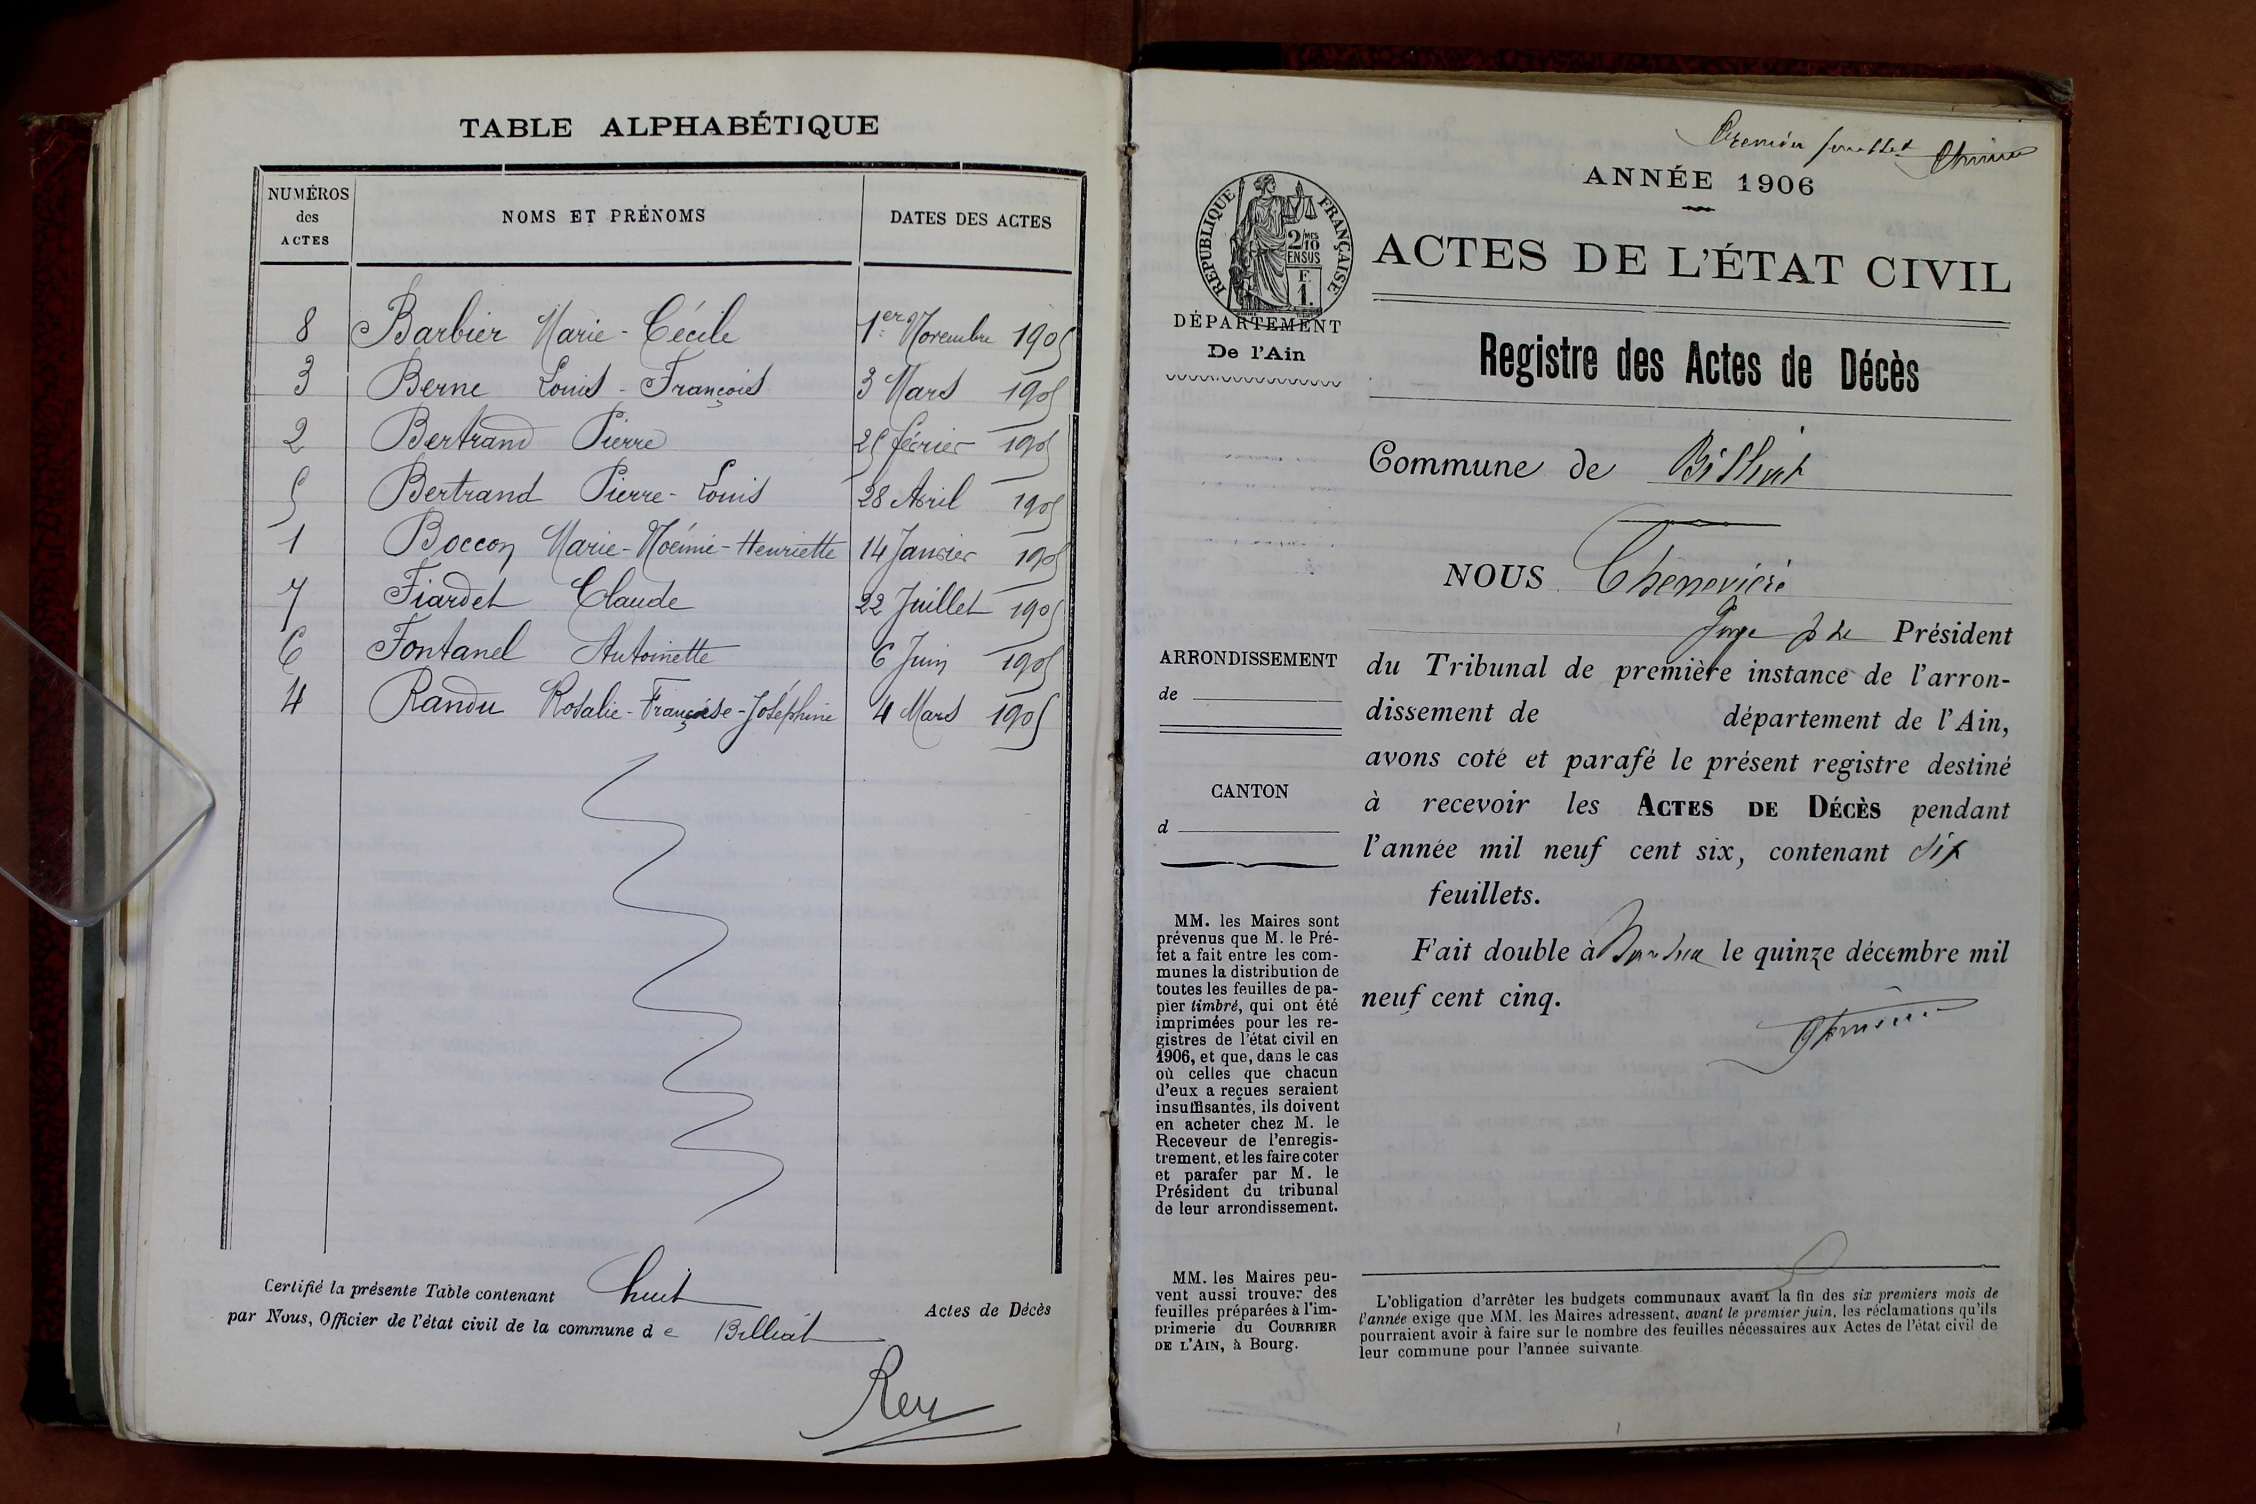 TABLE ALPHABÉTIQUE
NUMÉROS des ACTES NOMS ET PRÉNOMS DATES DES ACTES
8 Barbier Marie-Cécile 1er Novembre 1905
3 Berne Louis-François 3 Mars 1905
2 Bertrand Pierre 25 février 1905
5 Bertrand Pierre-Louis 28 Avril 1905
1 Boccon Marie-Noémie-Henriette 14 Janvier 1905
7 Fiardet Claude 22 Juillet 1905
6 Fontanel Antoinette 6 Juin 1905
4 Randu Rosalie-Françoise-Joséphine 4 Mars 1905
Certifié la présente Table contenant huit
Actes de Décès
par Nous, Officier de l'état civil de la commune de Billiat
Rey
Premier feuillet
ANNÉE 1906
RÉPUBLIQUE FRANÇAISE
2/10 MES
EN SUS
F.
1.
ACTES DE L'ÉTAT CIVIL
DÉPARTEMENT
De l'Ain
Registre des Actes de Décès
Commune de Billiat
NOUS
Juge Président
du Tribunal de première instance de l'arron-
dissement de département de l'Ain,
avons coté et parafé le présent registre destiné
à recevoir les ACTES DE DÉCÈS pendant
l'année mil neuf cent six, contenant six
feuillets.
Fait double à le quinze décembre mil
neuf cent cinq.
ARRONDISSEMENT
de
CANTON
d
MM. les Maires sont
prévenus que M. le Pré-
fet a fait entre les com-
munes la distribution de
toutes les feuilles de pa-
pier timbré, qui ont été
imprimées pour les re-
gistres de l'état civil en
1906, et que, dans le cas
où celles que chacun
d'eux a reçues seraient
insuffisantes, ils doivent
en acheter chez M. le
Receveur de l'enregis-
trement, et les faire coter
et parafer par M. le
Président du tribunal
de leur arrondissement.
MM. les Maires peu-
vent aussi trouver des
feuilles préparées à l'im-
primerie du COURRIER
DE L'AIN, à Bourg.
L'obligation d'arrêter les budgets communaux avant la fin des six premiers mois de
l'année exige que MM. les Maires adressent, avant le premier juin, les réclamations qu'ils
pourraient avoir à faire sur le nombre des feuilles nécessaires aux Actes de l'état civil de
leur commune pour l'année suivante.